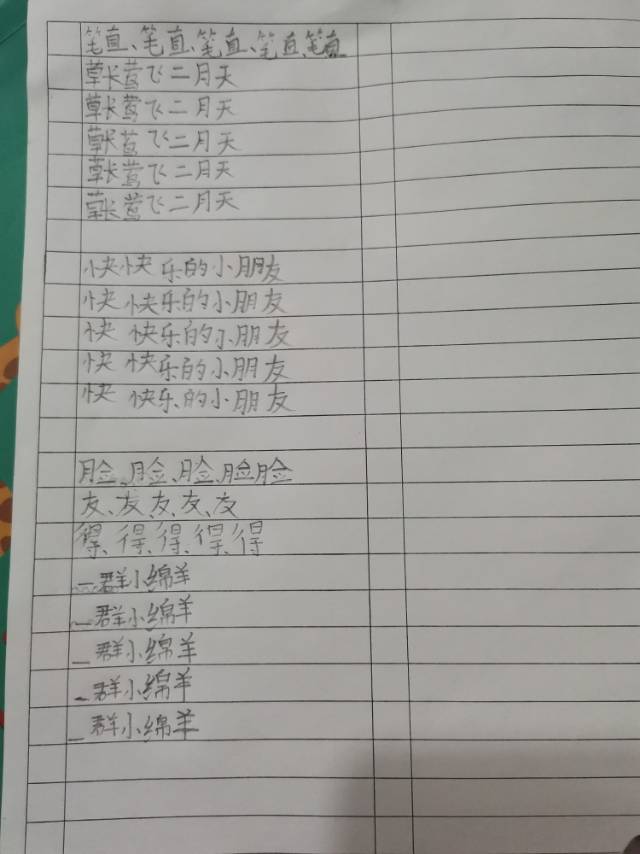 笔直、笔直、笔直、笔直、笔直
草长莺飞二月天
草长莺飞二月天
草长莺飞二月天
草长莺飞二月天
草长莺飞二月天
快快乐的小朋友
快快乐的小朋友
快快乐的小朋友
快快乐的小朋友
快快乐的小朋友
脸、脸、脸、脸脸
友、友、友、友、友
得、得、得、得、得
一群小绵羊
一群小绵羊
一群小绵羊
一群小绵羊
一群小绵羊